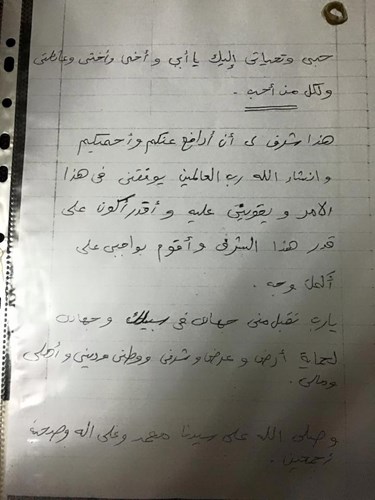 حبى وتحياتى إليك يا أبى و أخى وأختى وعائلتى
ولكل من أحب .
هذا شرف لى أن أدافع عنكم وأحميكم
وانشاء الله رب العالمين يوفقنى فى هذا
الأمر و يقوينى عليه و أقدر أكون على
قدر هذا الشرف وأقوم بواجبى على
أكمل وجه .
يارب تقبل منى جهادى فى سبيلك وجهادى
لحماية أرضى و عرضى وشرفى ووطنى ودينى وأهلى
ومالى .
وصلى الله على سيدنا محمد وعلى آله وصحبه
أجمعين .